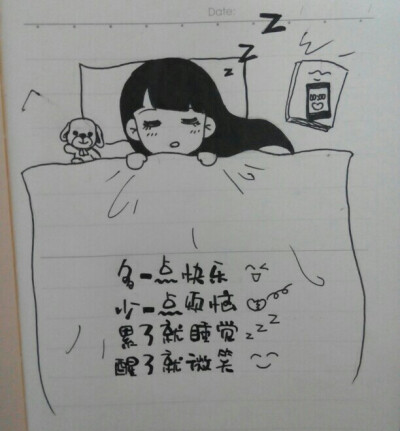 Date:
z z Z
多一点快乐
少一点烦恼
累了就睡觉 zzZ
醒了就微笑